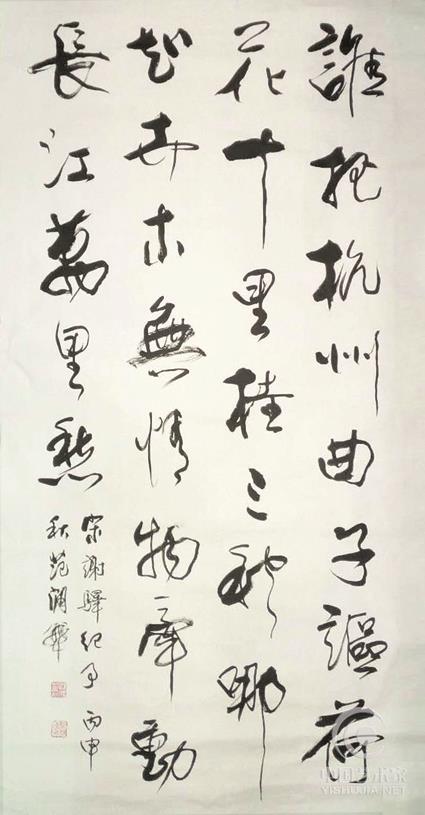 誰把杭州曲子謳荷
花十里桂三秋那
知卉木無情物牽動
長江萬里愁
宋謝驛紀事 丙申
秋范
中国艺术家
YISHUJIA.NET